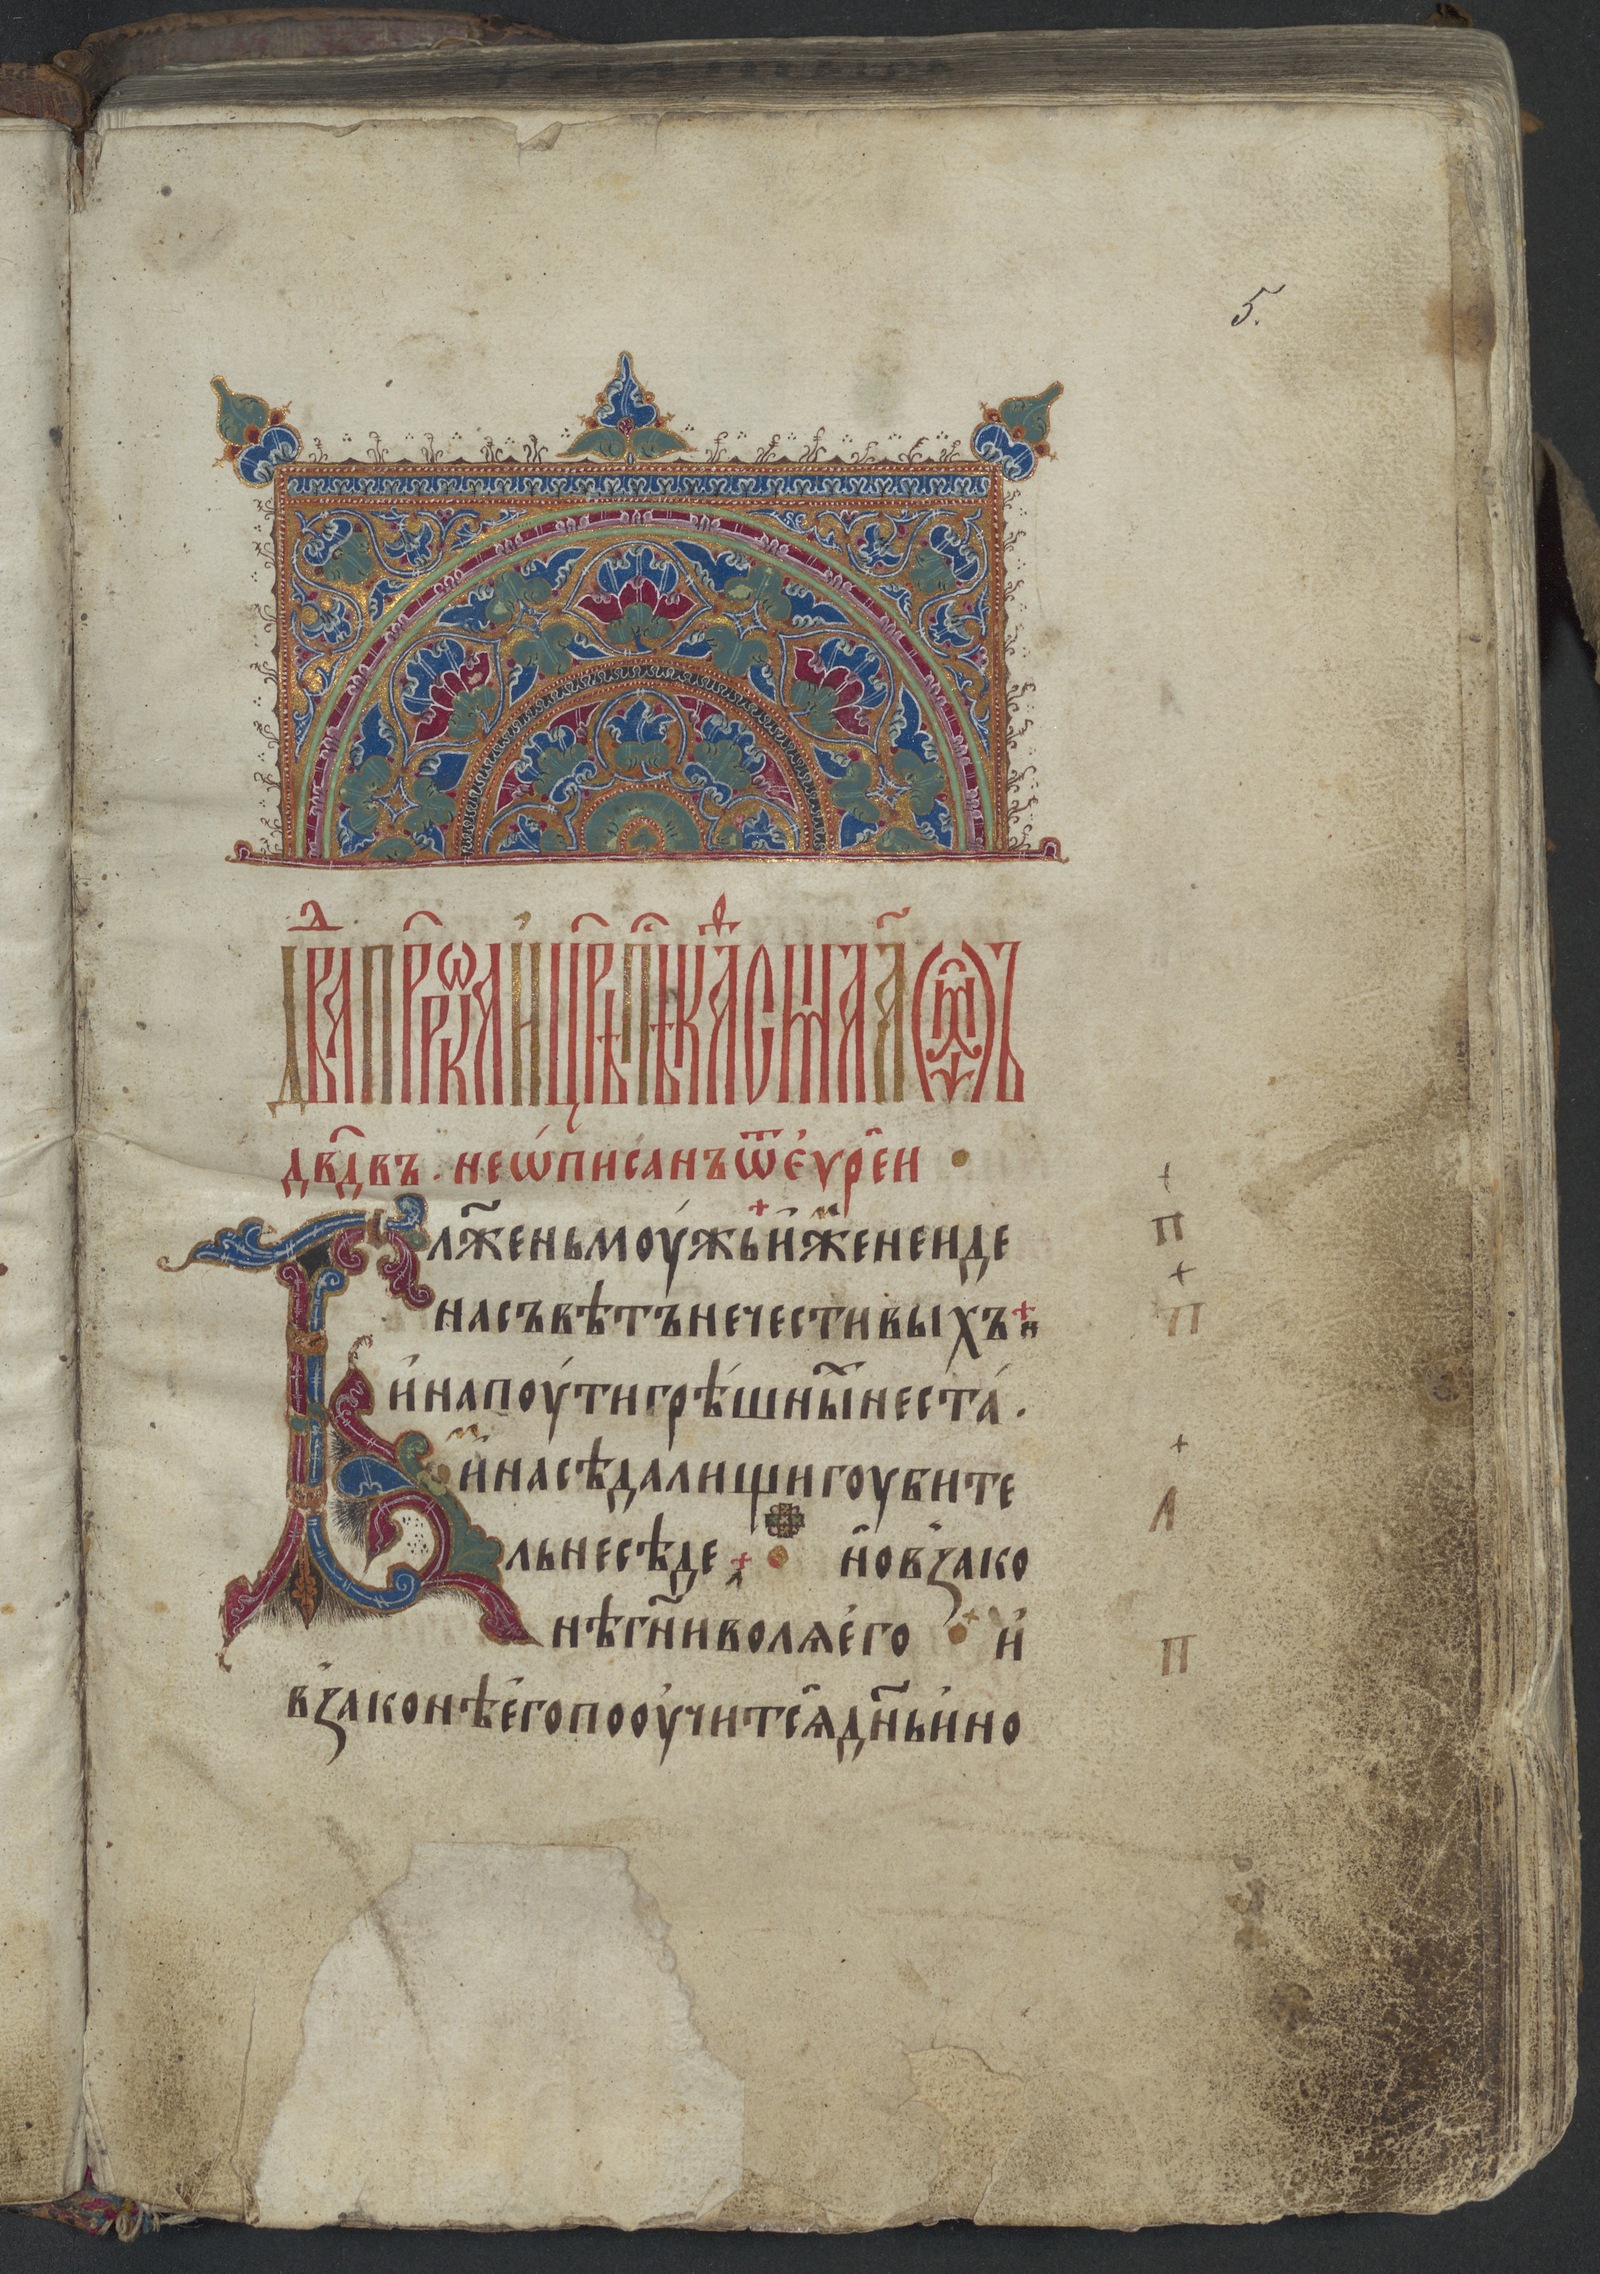 5.
Дв҃да прⷪ҇рока и цр҃ѧ пѣснь ѱаломъ
дв҃двъ . не ѡ҆писанъ ѿ є҆ѵре҆и
Бл҃женъ моужь и҆же не иде
на съвѣтъ нечестивыхъ
и҆ на поути грѣшны҃ и не ста .
и҆ на сѣдалищи гоубите
ль не сѣде но в҆ зако
нѣ гн҃и волѧ е҆го и҆
в҆ законѣ е҆го пооучитсѧ дн҃ь и҆ но
П
П
Л
П